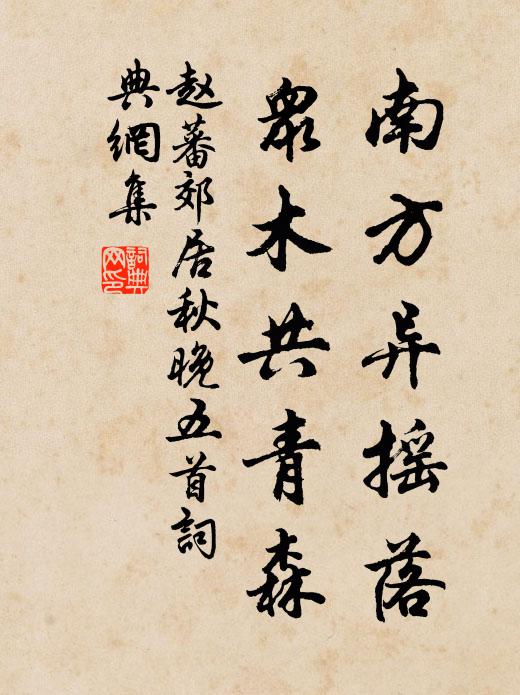 南方异摇落
眾木共青森
赵蕃郊居秋晚五首詞
典網集
詞典
网印